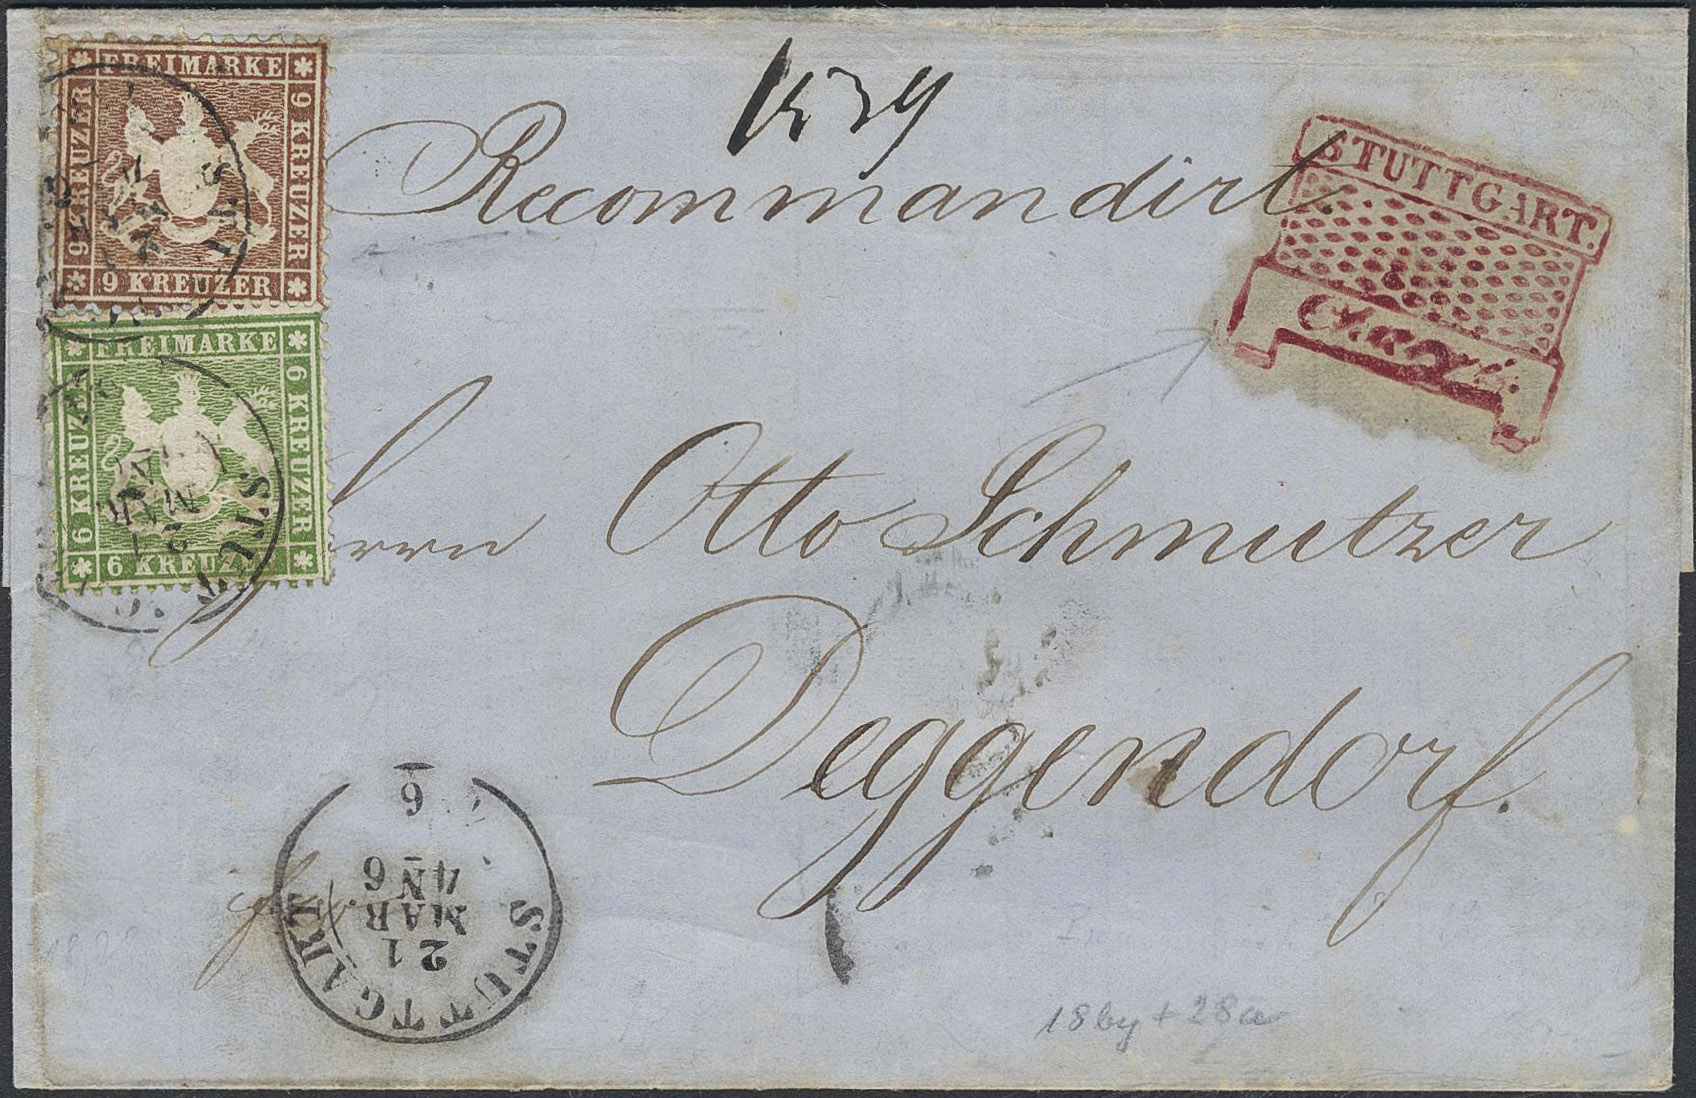 FREIMARKE
9 KREUZER
9 KREUZER
9 KREUZER
FREIMARKE
6 KREUZER
6 KREUZER
6 KREUZER
Recommandirt.
STUTTGART.
Chargé.
Herrn Otto Schmutzer
Deggendorf.
STUTTGART
21
MAR
6
18by + 28a